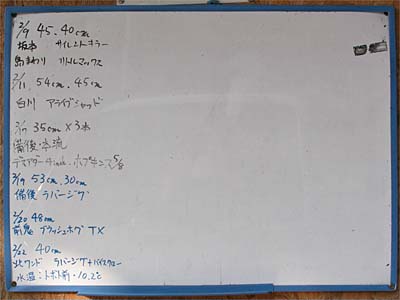 2/9 45.40cm
坂本 サイレントキラー
島まわり リトルマックス
2/11 54cm.45cm
白川 アライブシャッド
35cm×3本
備後・本流
4inch.
2/19 53cm.30cm
備後 ラバージグ
2/20 48cm
前鬼 ブラッシュホグ TX
2/22 40cm
北ワンド ラバージグ+
水温:トボト前・10.2℃